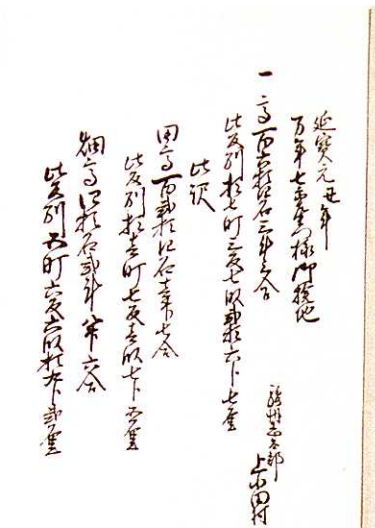 延寶元丑年
万年七 様御検地
駿州志太郡
上小田村
一高百六拾 石三斗 合
此反別拾七町三反七畝弐拾六卜七厘
此訳
田高百弐拾 石 七合
此反別拾壱町七反壱畝七卜五厘
畑高 拾石弐斗 六合
此反別五町六反六畝拾九卜弐厘